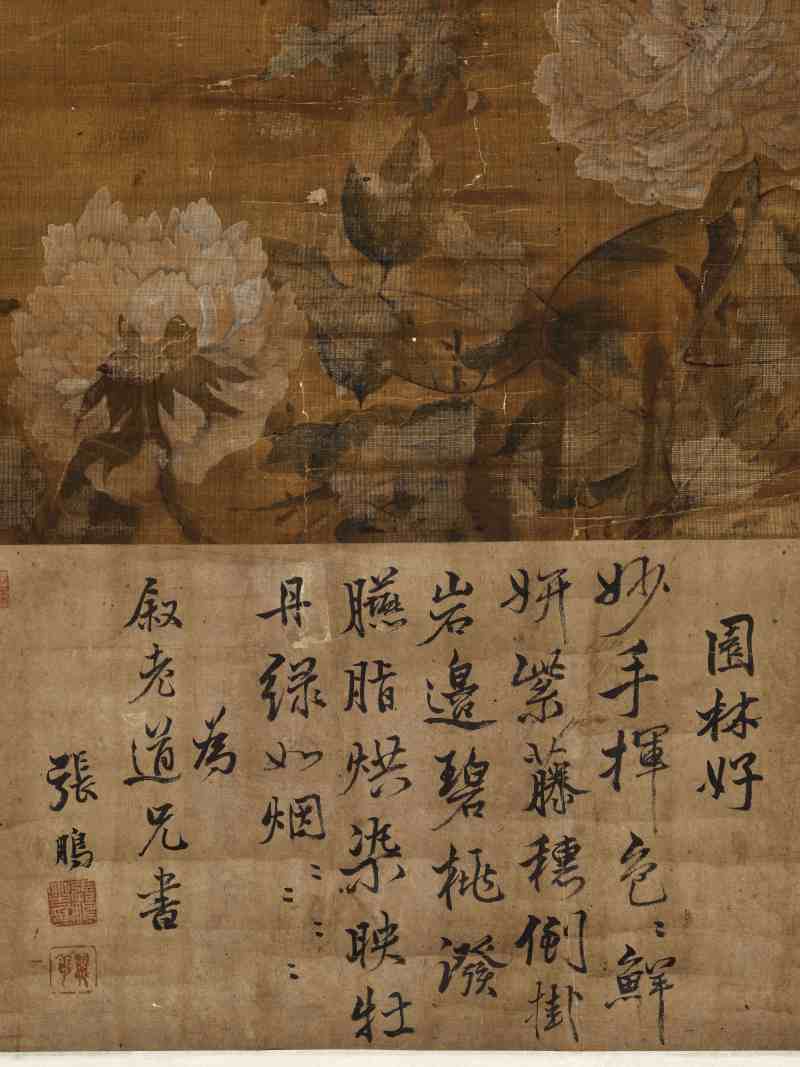 園林好
妙手揮色〻鮮
妍紫藤穗倒掛
岩邊碧桃潑
臙脂烘染映牡
丹綠如烟〻〻〻〻
為
叙老道兄書
張鵬